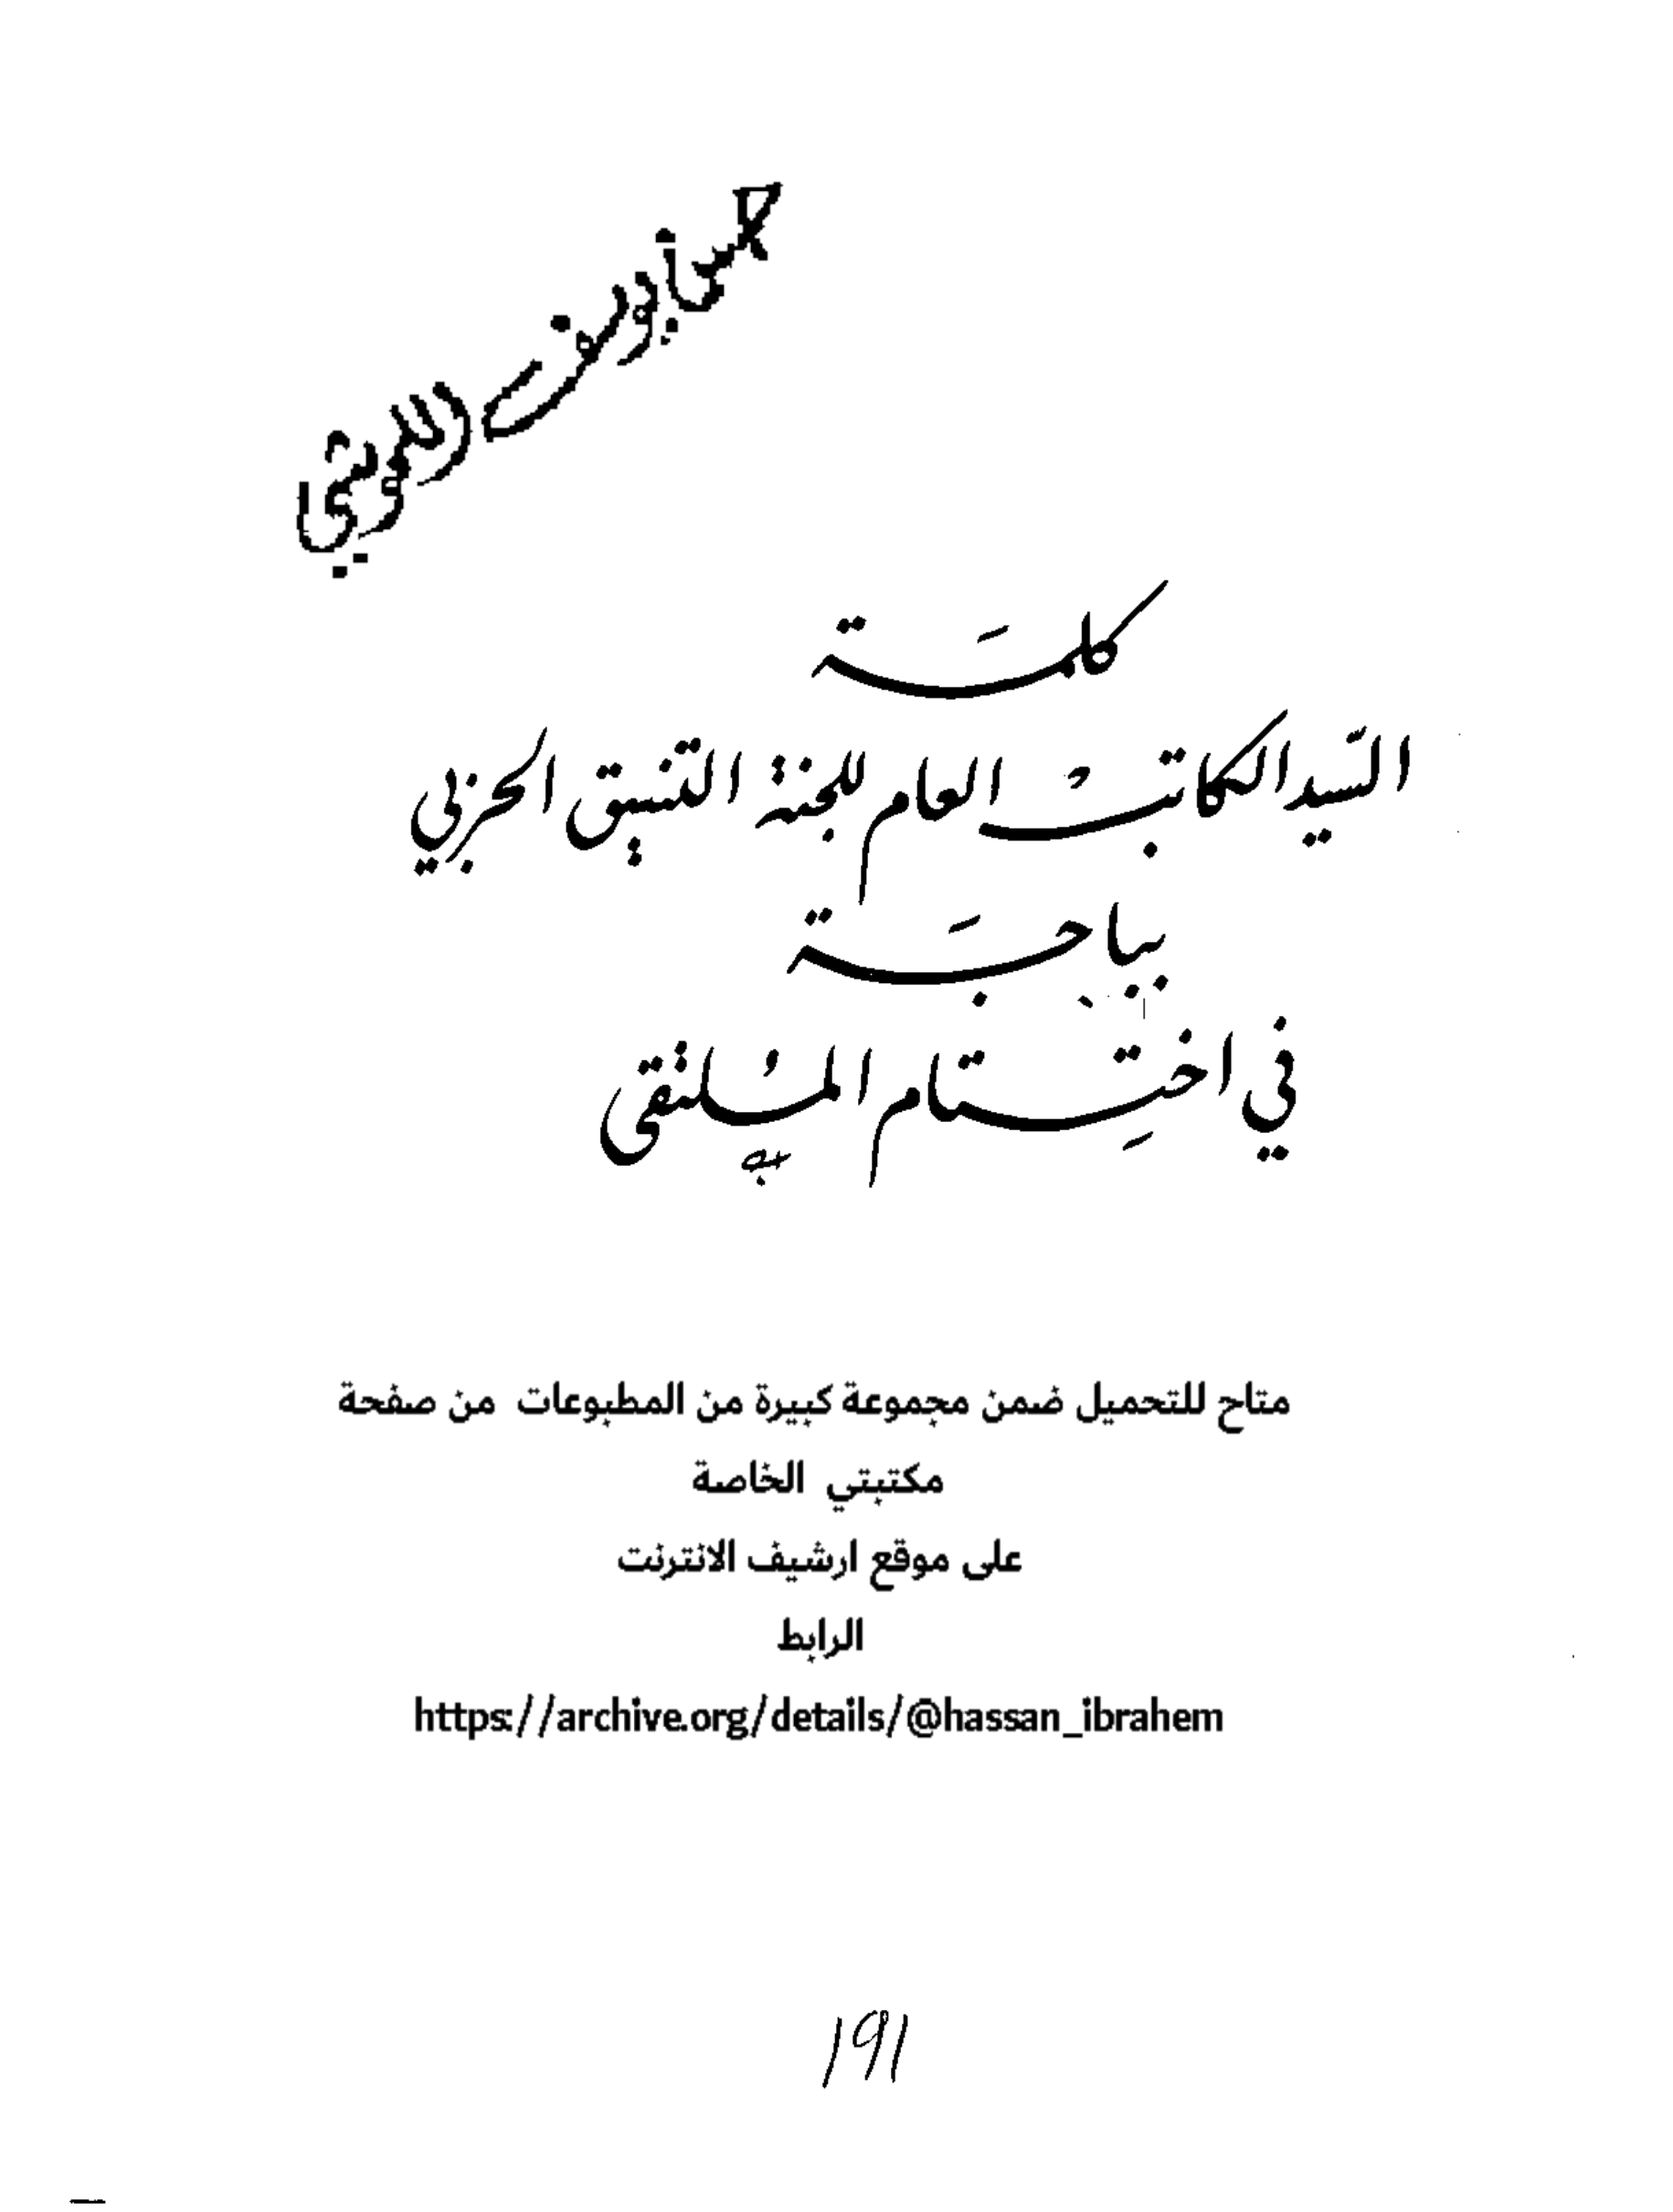 كلمَة
السّيد الكاتب العام للجنة التنسيق الحزبي
بباجَة
في اختِتام المُلتقى
متاح للتحميل ضمن مجموعة كبيرة من المطبوعات من صفحة
مكتبتي الخاصة
على موقع ارشيف الانترنت
الرابط
https://archive.org/details/@hassan_ibrahem
191